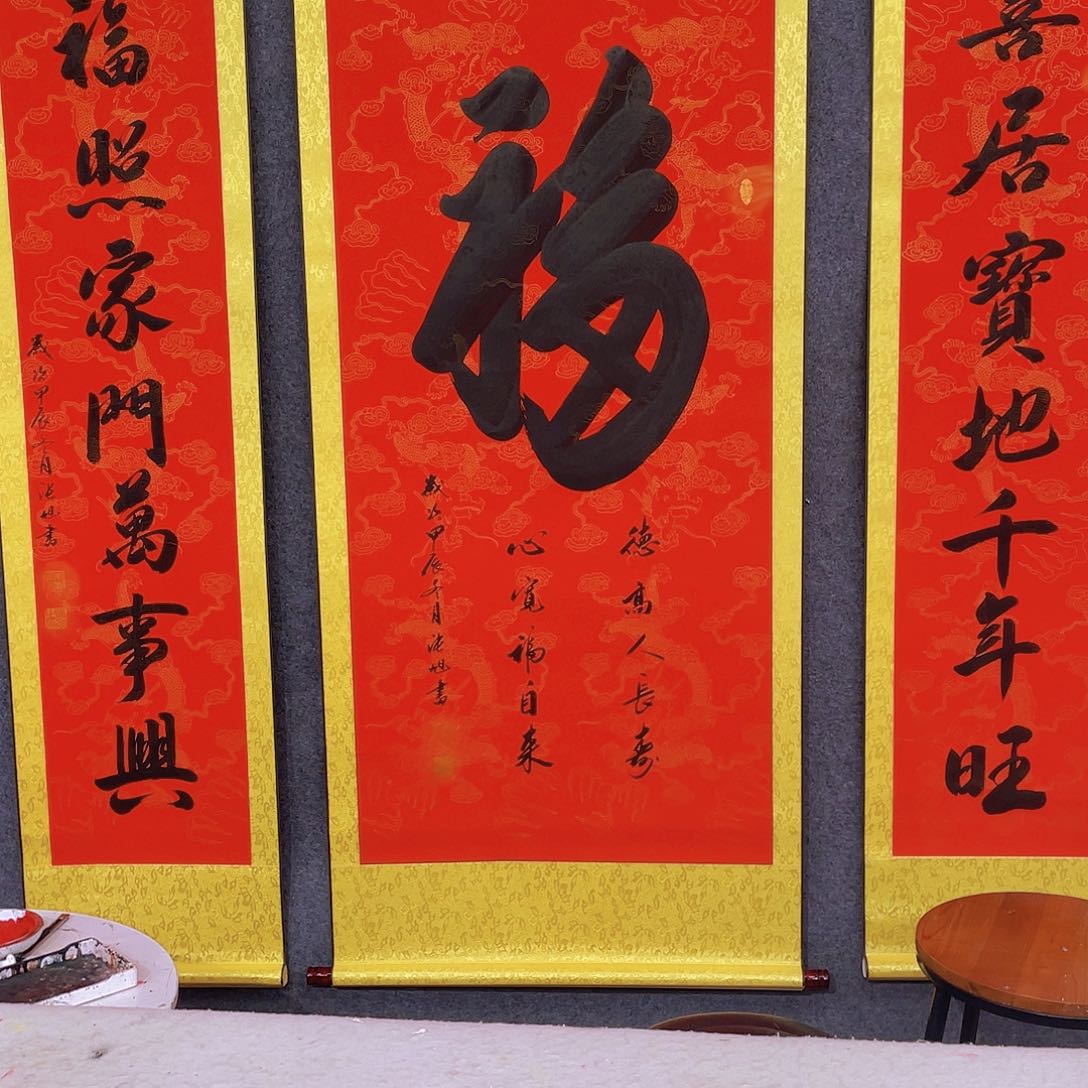 喜居寶地千年旺
福
德高人長壽
心寬福自來
歲次甲辰月書
福照家門萬事興
歲次甲辰月書